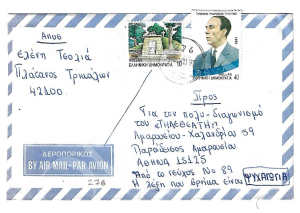 Αποθ
Ελένη Τσολιά
Πλάτανος Τρικάλων
42100.
ΕΛΛΗΝΙΚΗ ΔΗΜΟΚΡΑΤΙΑ 10
ΕΛΛΗΝΙΚΗ ΔΗΜΟΚΡΑΤΙΑ 40
Προς
Για τον πολυ-διαγωνισμό
του "ΤΗΛΕΘΕΑΤΗ"
Αμαρουσίου-Χαλανδρίου 59
Παράδεισος Αμαρουσίου
ΑΘΗΝΑ 15125
Από το τεύχος Νο 89
Η λέξη που βρήκα είναι ΨΥΧΑΓΩΓΙΑ
ΑΕΡΟΠΟΡΙΚΩΣ
BY AIR MAIL-PAR AVION
276